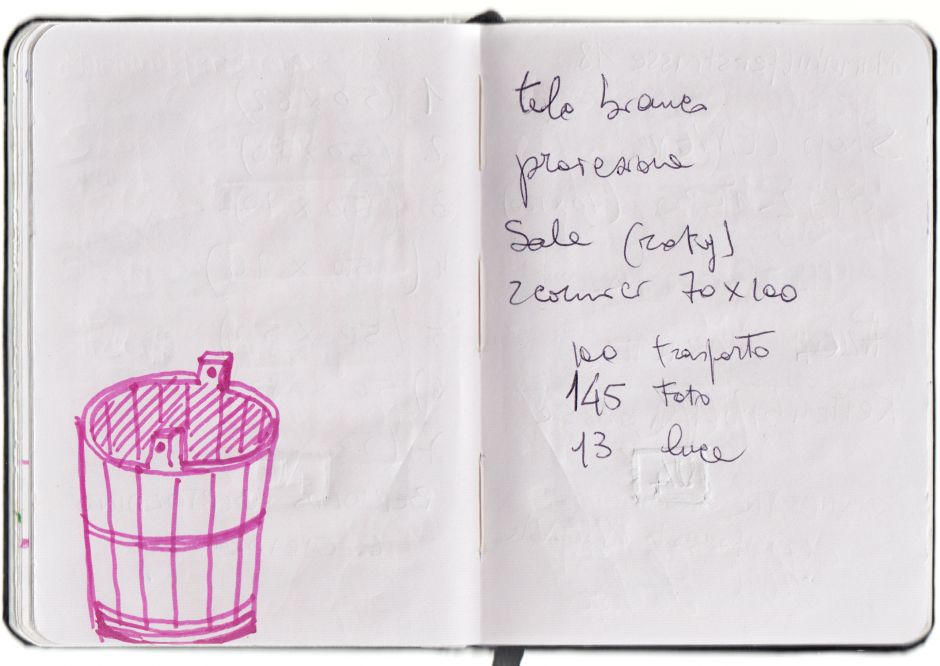 telo bianco
proiezione
Sale
70x100
100 trasporto
145 Foto
13 luce